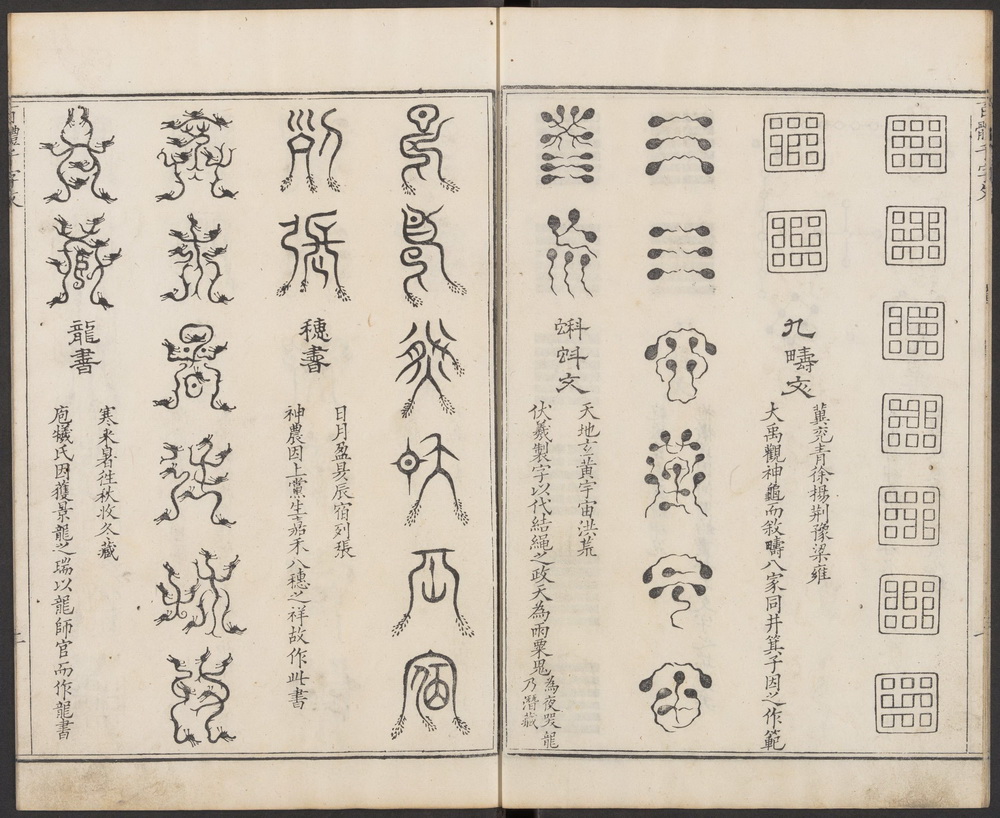 百體千字文
九疇文
冀兗青徐揚荊豫梁雍
大禹觀神龜而敘疇八家同井箕子因之作範
蝌蚪文
天地玄黃宇宙洪荒
伏羲製字以代結繩之政天為雨粟鬼為夜哭龍
乃潛藏
日月盈昃辰宿
列張
穗書
日月盈昃辰宿列張
神農因上黨生嘉禾八穗之祥故作此書
寒來暑往秋收
冬藏
龍書
寒來暑往秋收冬藏
庖犧氏因獲景龍之瑞以龍師官而作龍書
百體千字文